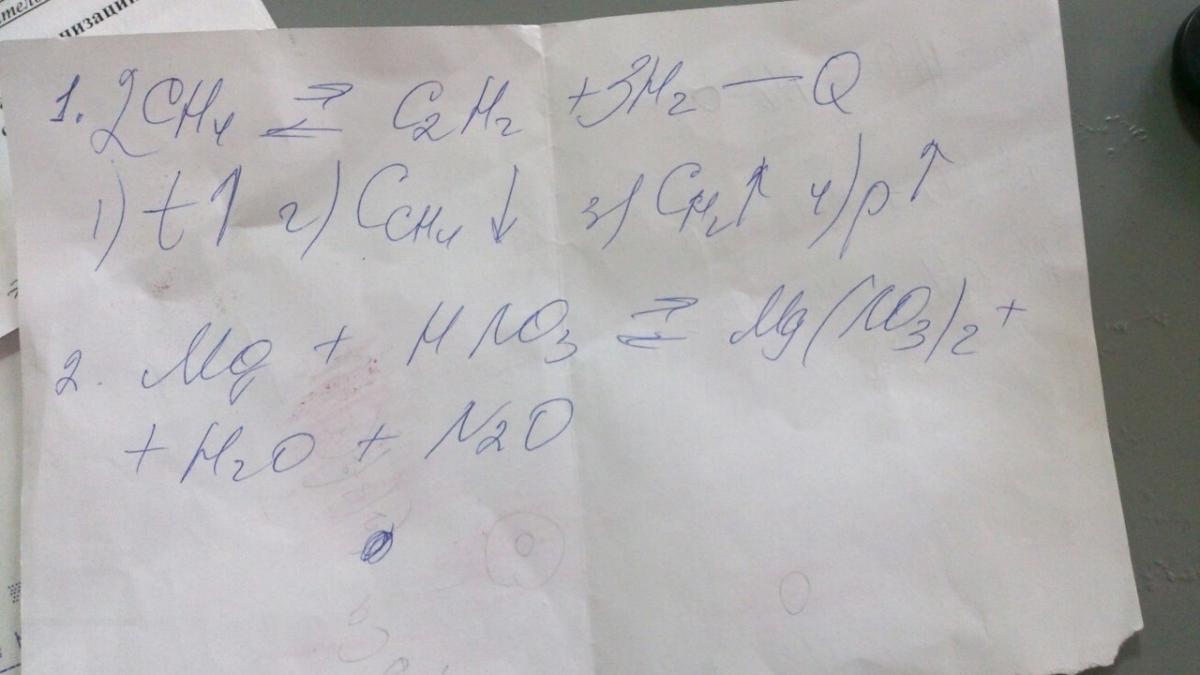 низаци
1. 2CH4 ⇄ C2H2 + 3H2 — Q
1) t↑ 2) CCH4 ↓ 3) CH2↑ 4) p↑
2. Mg + HNO3 ⇄ Mg(NO3)2 +
+ H2O + N2O